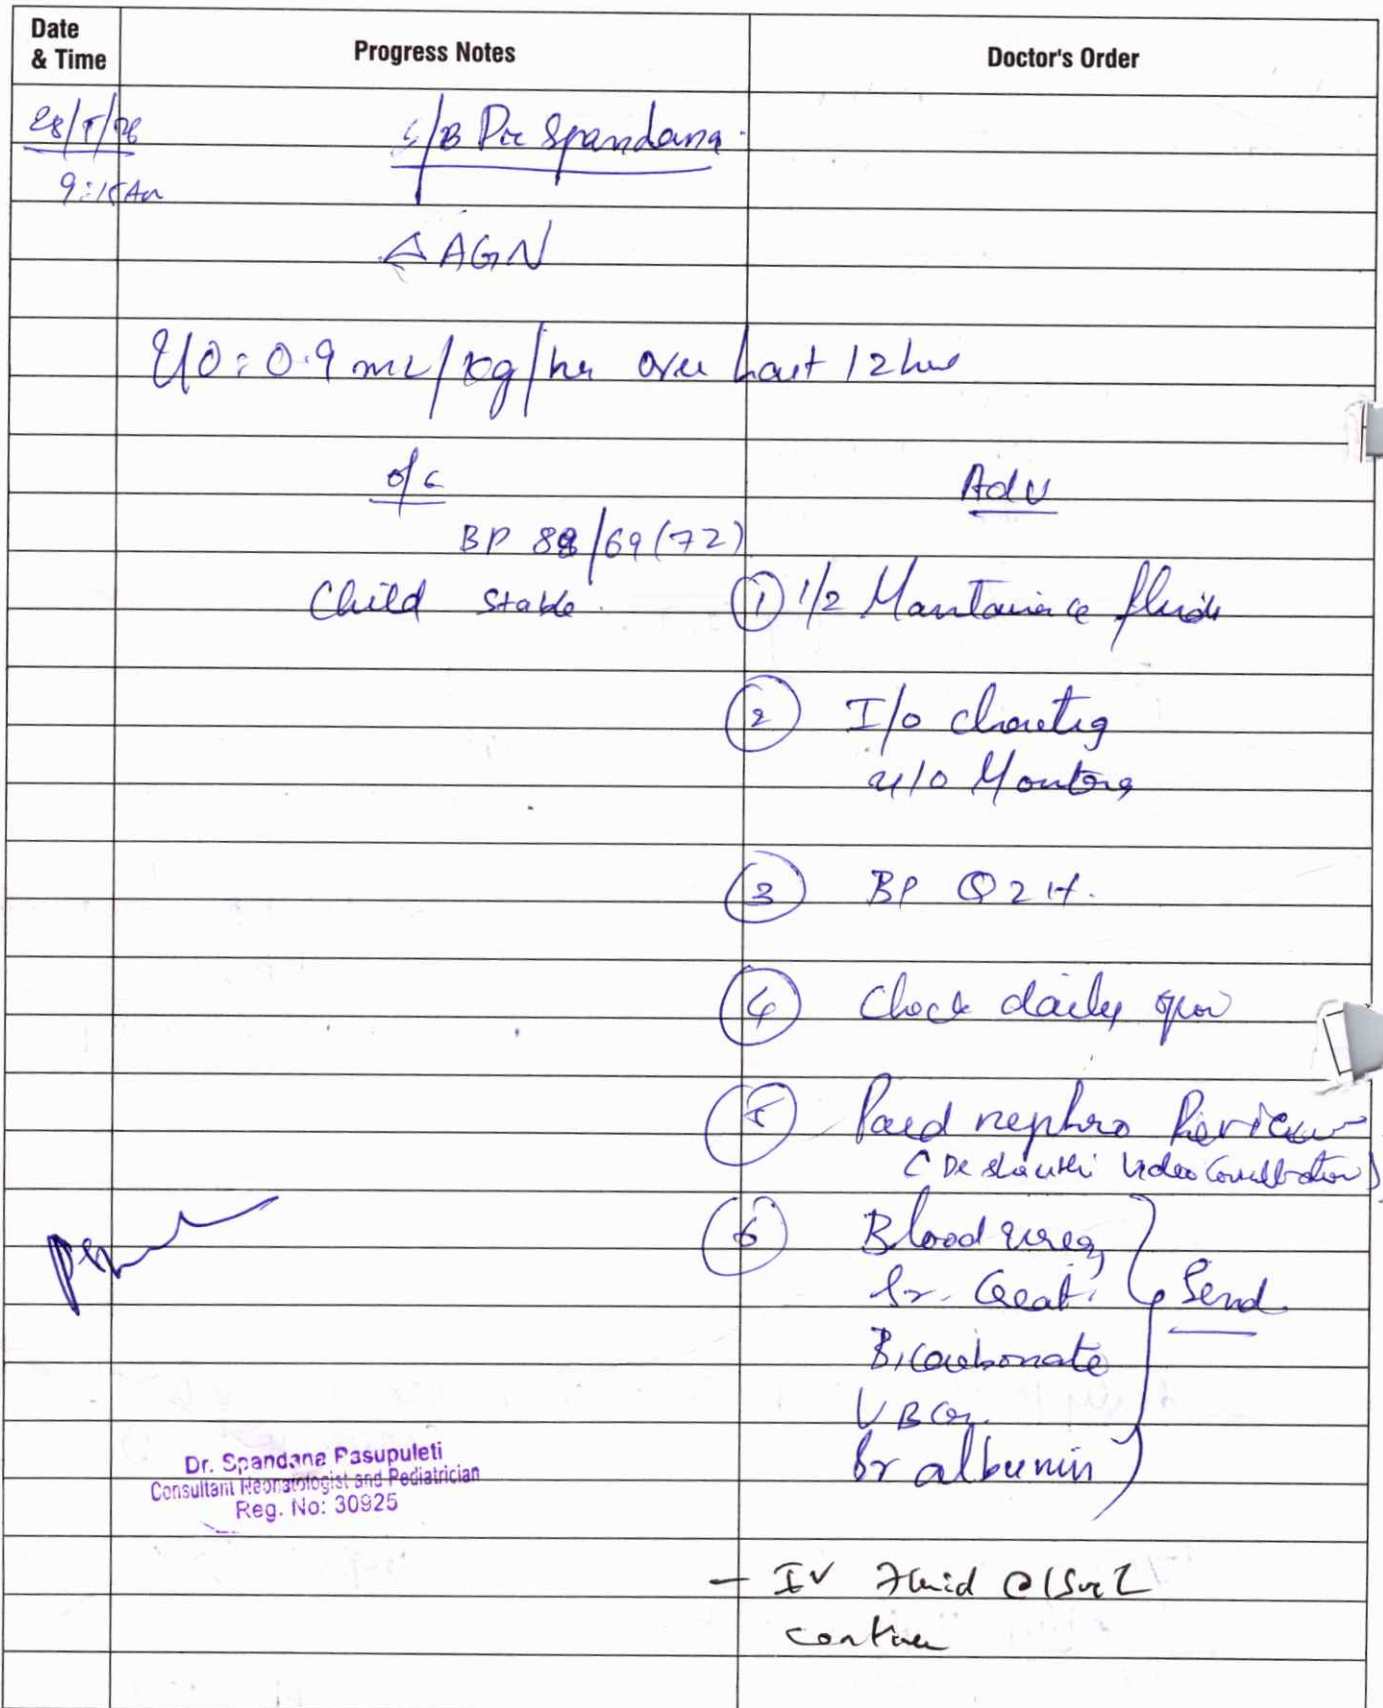 Date & Time
Progress Notes
Doctor's Order
28/5/26
S/B Dr Spandana
9:15 Am
Δ AGN
U/O : 0.9 ml/kg/hr over last 12 hrs
o/e
Adv
BP 88/69 (72)
Child stable.
① 1/2 Maintainence fluids
② I/O charting
u/o Monitoring
③ BP Q2H.
④ Check daily
⑤ Paed nephro Review
(Dr Video Consultation)
⑥ Blood urea,
Sr. Creat.
Send
Bicarbonate
VBG.
Sr albumin
Dr. Spandana Pasupuleti
Consultant Neonatologist and Pediatrician
Reg. No: 30925
- IV Fluid @
continue